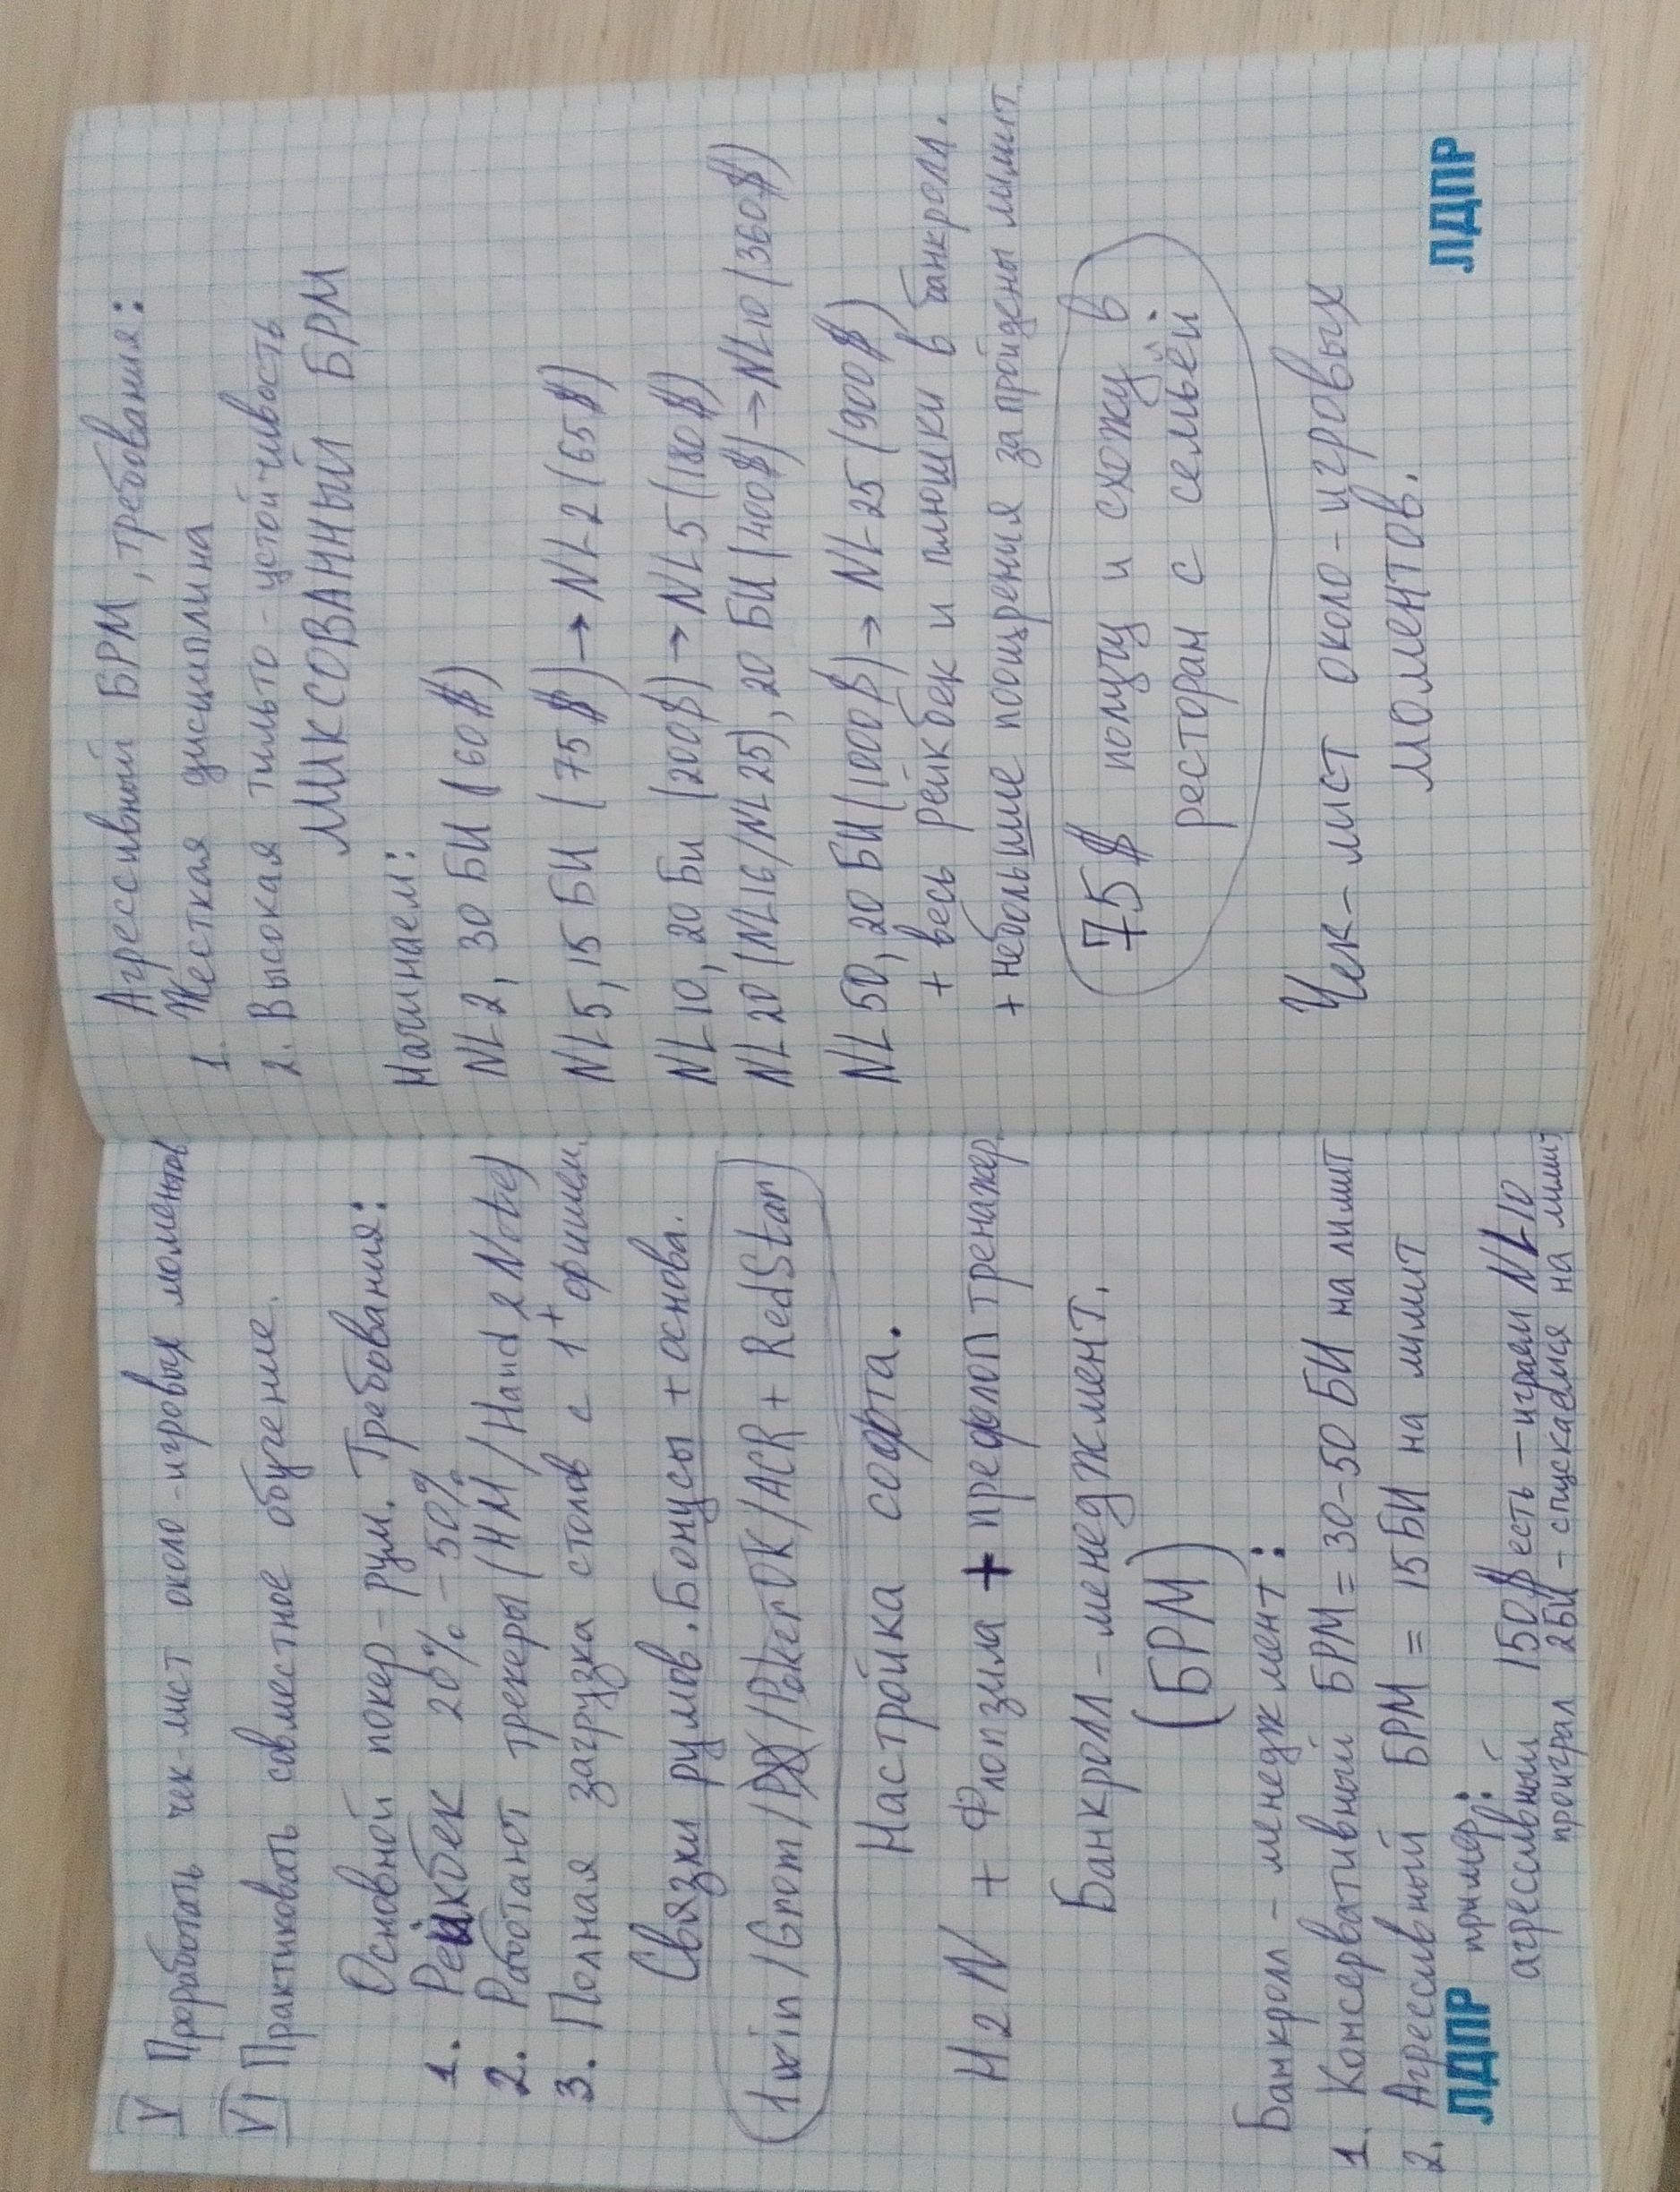 V Проработать чек-лист около-игровых моментов
VI Практиковать совместное обучение.
Основной покер-рум. Требования:
1. Рейкбек 20% - 50%
2. Работают трекеры (HM/Hand 2 Note)
3. Полная загрузка столов с 1+ фишем.
Связки румов. Бонусы + основа.
1win/Grom/PokerOK/ACR + RedStar
Настройка софта.
H2N + Флопзила + префлоп тренажер
Банкролл-менеджмент.
(БРМ)
Банкролл-менеджмент:
1. Консервативный БРМ = 30-50 БИ на лимит
2. Агрессивный БРМ = 15 БИ на лимит
пример:
агрессивный 150$ есть - играем NL10
проиграл 2БИ - спускаемся на лимит
ЛДПР
Агрессивный БРМ, требования:
1. Жесткая дисциплина
2. Высокая тильто-устойчивость
МИКСОВАННЫЙ БРМ
Начинаем:
NL2, 30 БИ (60$)
NL5, 15 БИ (75$) → NL2 (65$)
NL10, 20 Би (200$) → NL5 (180$)
NL20 (NL16/NL25), 20 БИ (400$) → NL10 (360$)
NL50, 20 БИ (1000$) → NL25 (900$)
+ весь рейкбек и плюшки в банкролл.
+ небольшие поощрения за пройдены лимит
75$ получу и схожу в
ресторан с семьёй
Чек-лист около-игровых
моментов.
ЛДПР